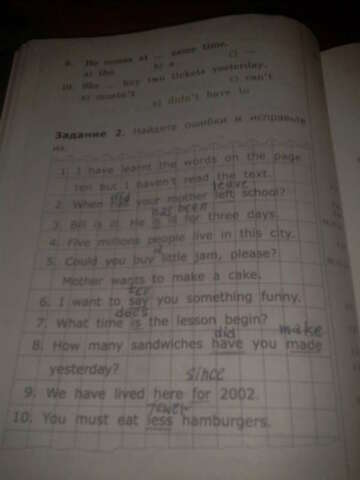 9. He comes at ... same time.
a) the b) a c) ...
10. She ... buy two tickets yesterday.
a) mustn't c) can't
b) didn't have to
Задание 2. Найдите ошибки и исправьте
их.
1. I have learnt the words on the page
ten but I haven't read the text.
did leave
2. When your mother left school?
has been
3. Bill is ill. He is for three days.
4. Five millions people live in this city.
5. Could you buy little jam, please?
Mother wants to make a cake.
6. I want to say you something funny.
does
7. What time is the lesson begin?
did make
8. How many sandwiches have you made
yesterday?
since
9. We have lived here for 2002.
fewer
10. You must eat less hamburgers.